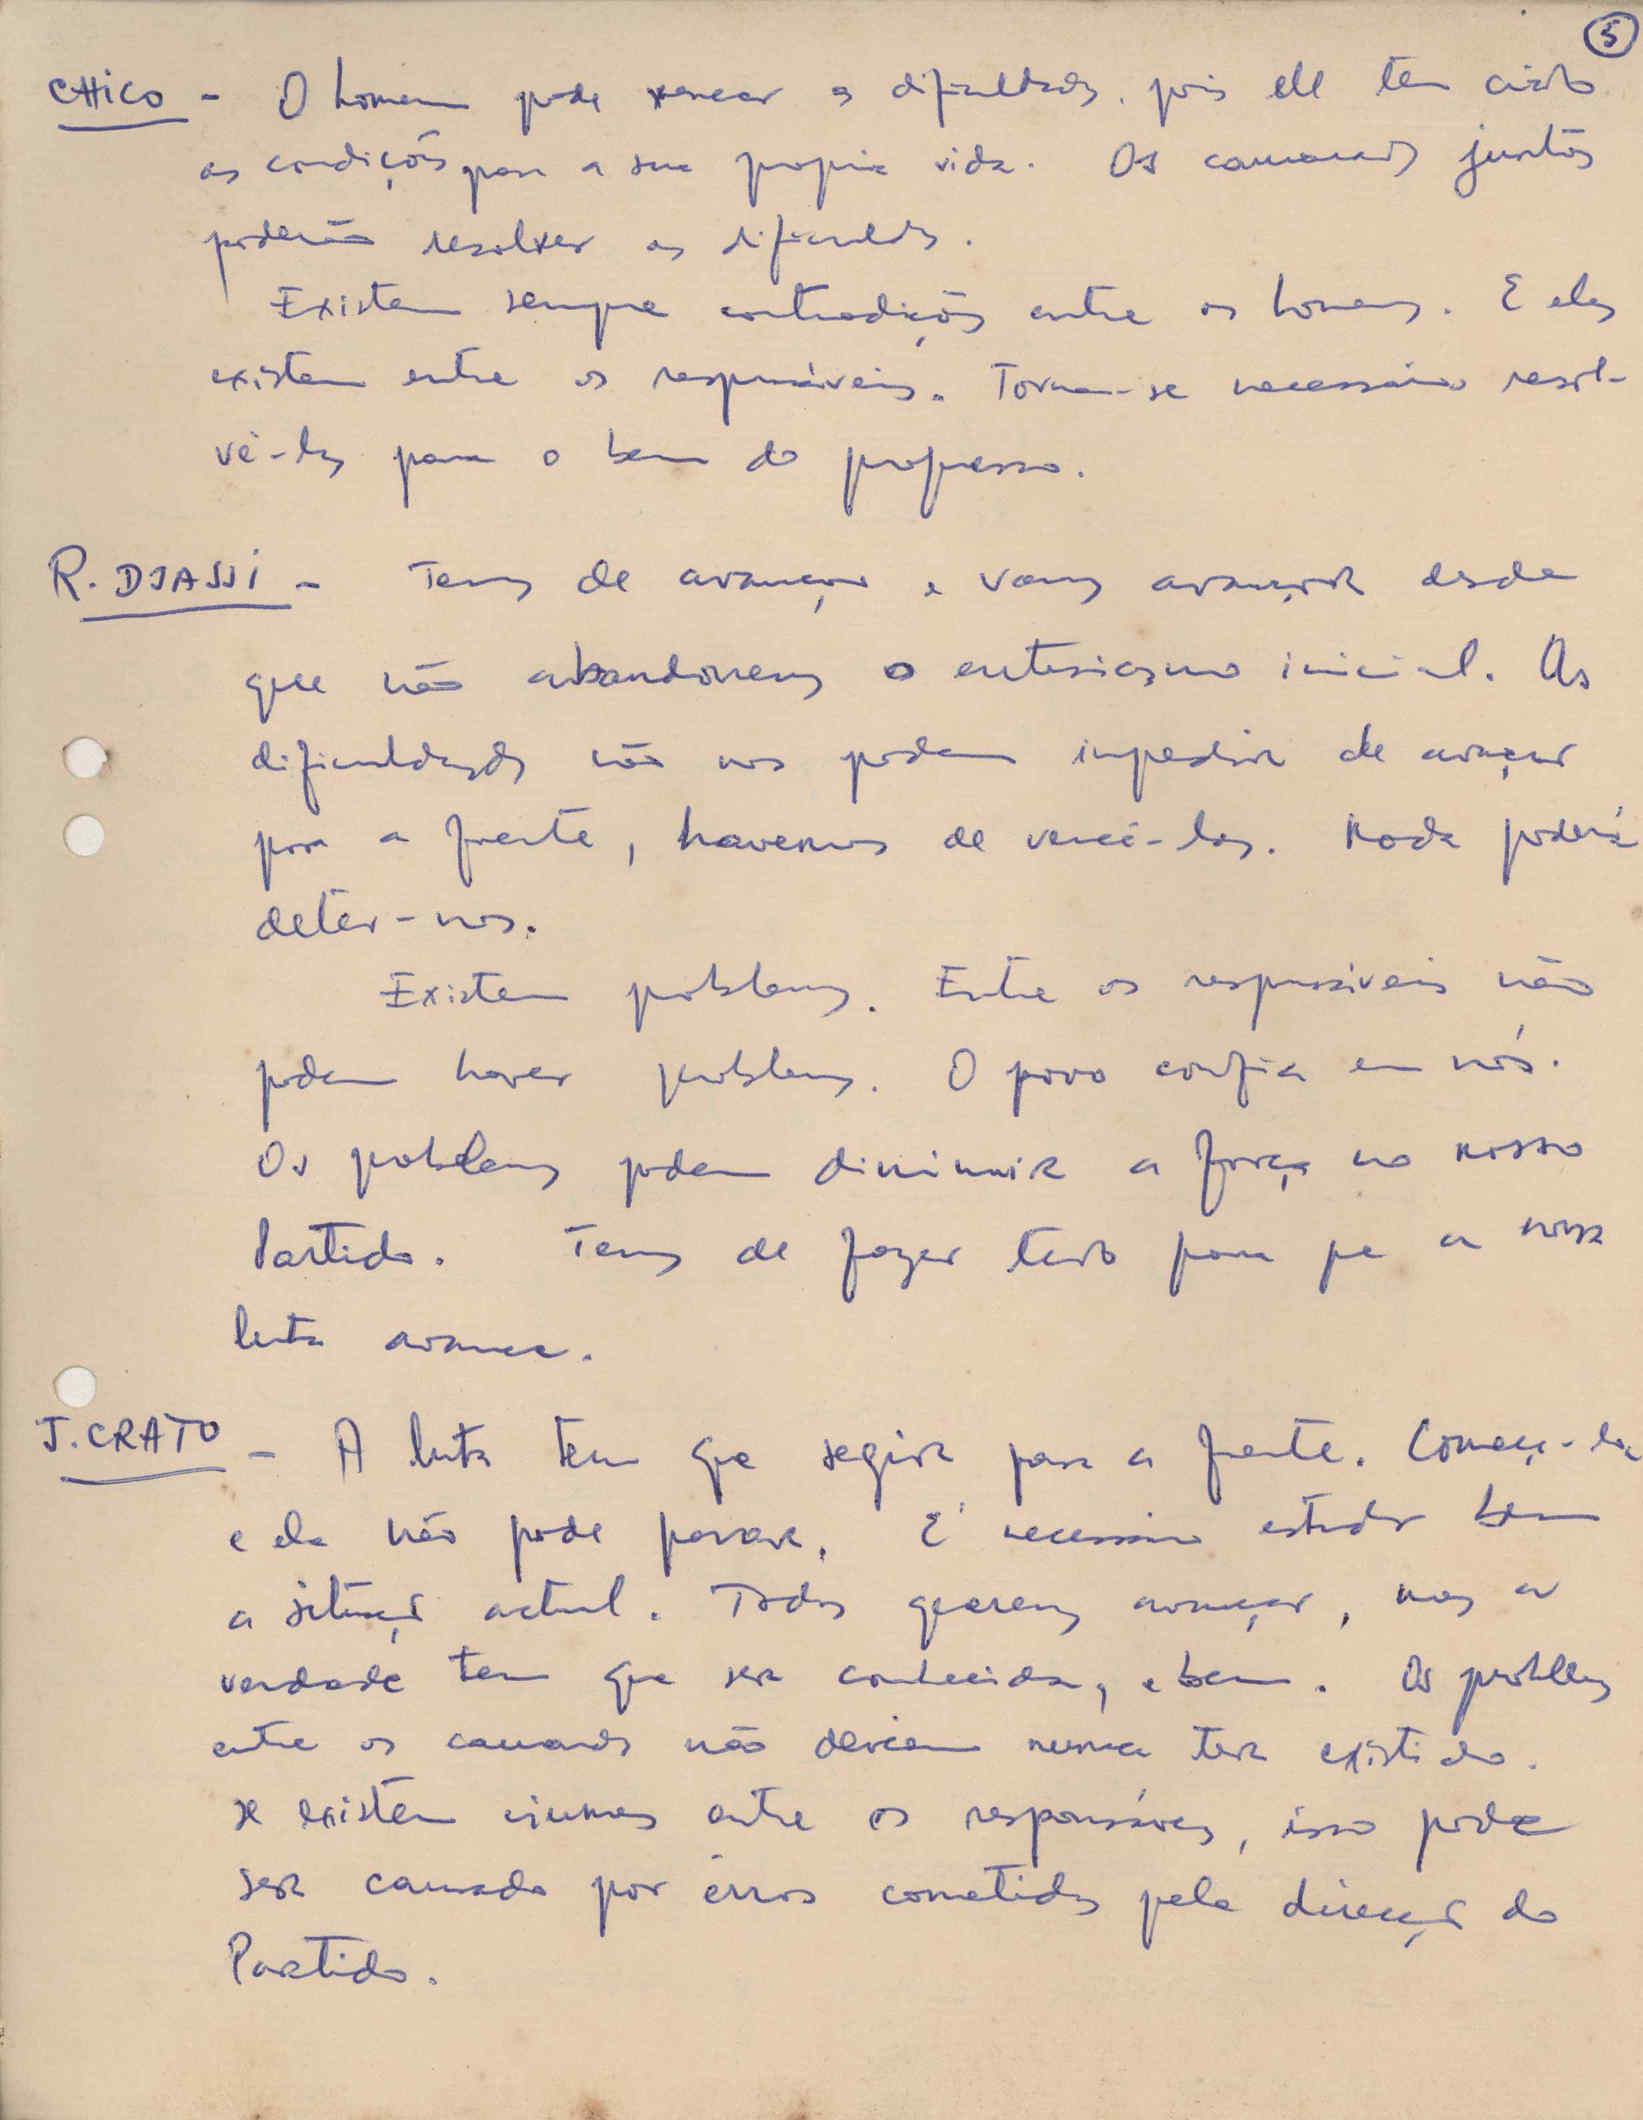 5
CHICO - O homem pode vencer as dificuldades. pois ele tem criado
as condições para a sua propria vida. Os camaradas juntos
poderão resolver as dificuldades.
Existem sempre contradições entre os homens. E eles
existem entre os responsáveis. Torna-se necessário resol-
vê-las para o bem do progresso.
R. DJASSI - Temos de avançar e vamos avançar desde
que não abandonemos o entusiasmo inicial. As
dificuldades não nos podem impedir de avançar
para a frente, havemos de vencê-las. Nada poderá
deter-nos.
Existem problemas. Entre os responsáveis não
podem haver problemas. O povo confia em nós.
Os problemas podem diminuir a força no nosso
Partido. Temos de fazer tudo para que a nossa
luta avance.
J. CRATO - A luta tem que seguir para a frente. Começ
e ela não pode parar. É necessário estudar bem
a situação actual. Todos queremos avançar, mas a
verdade tem que ser conhecida, e bem. Os problemas
entre os camaradas não deviam nunca ter existido.
Se existem ciumes entre os responsáveis, isso pode
ser causado por érros cometidos pela direcção do
Partido.